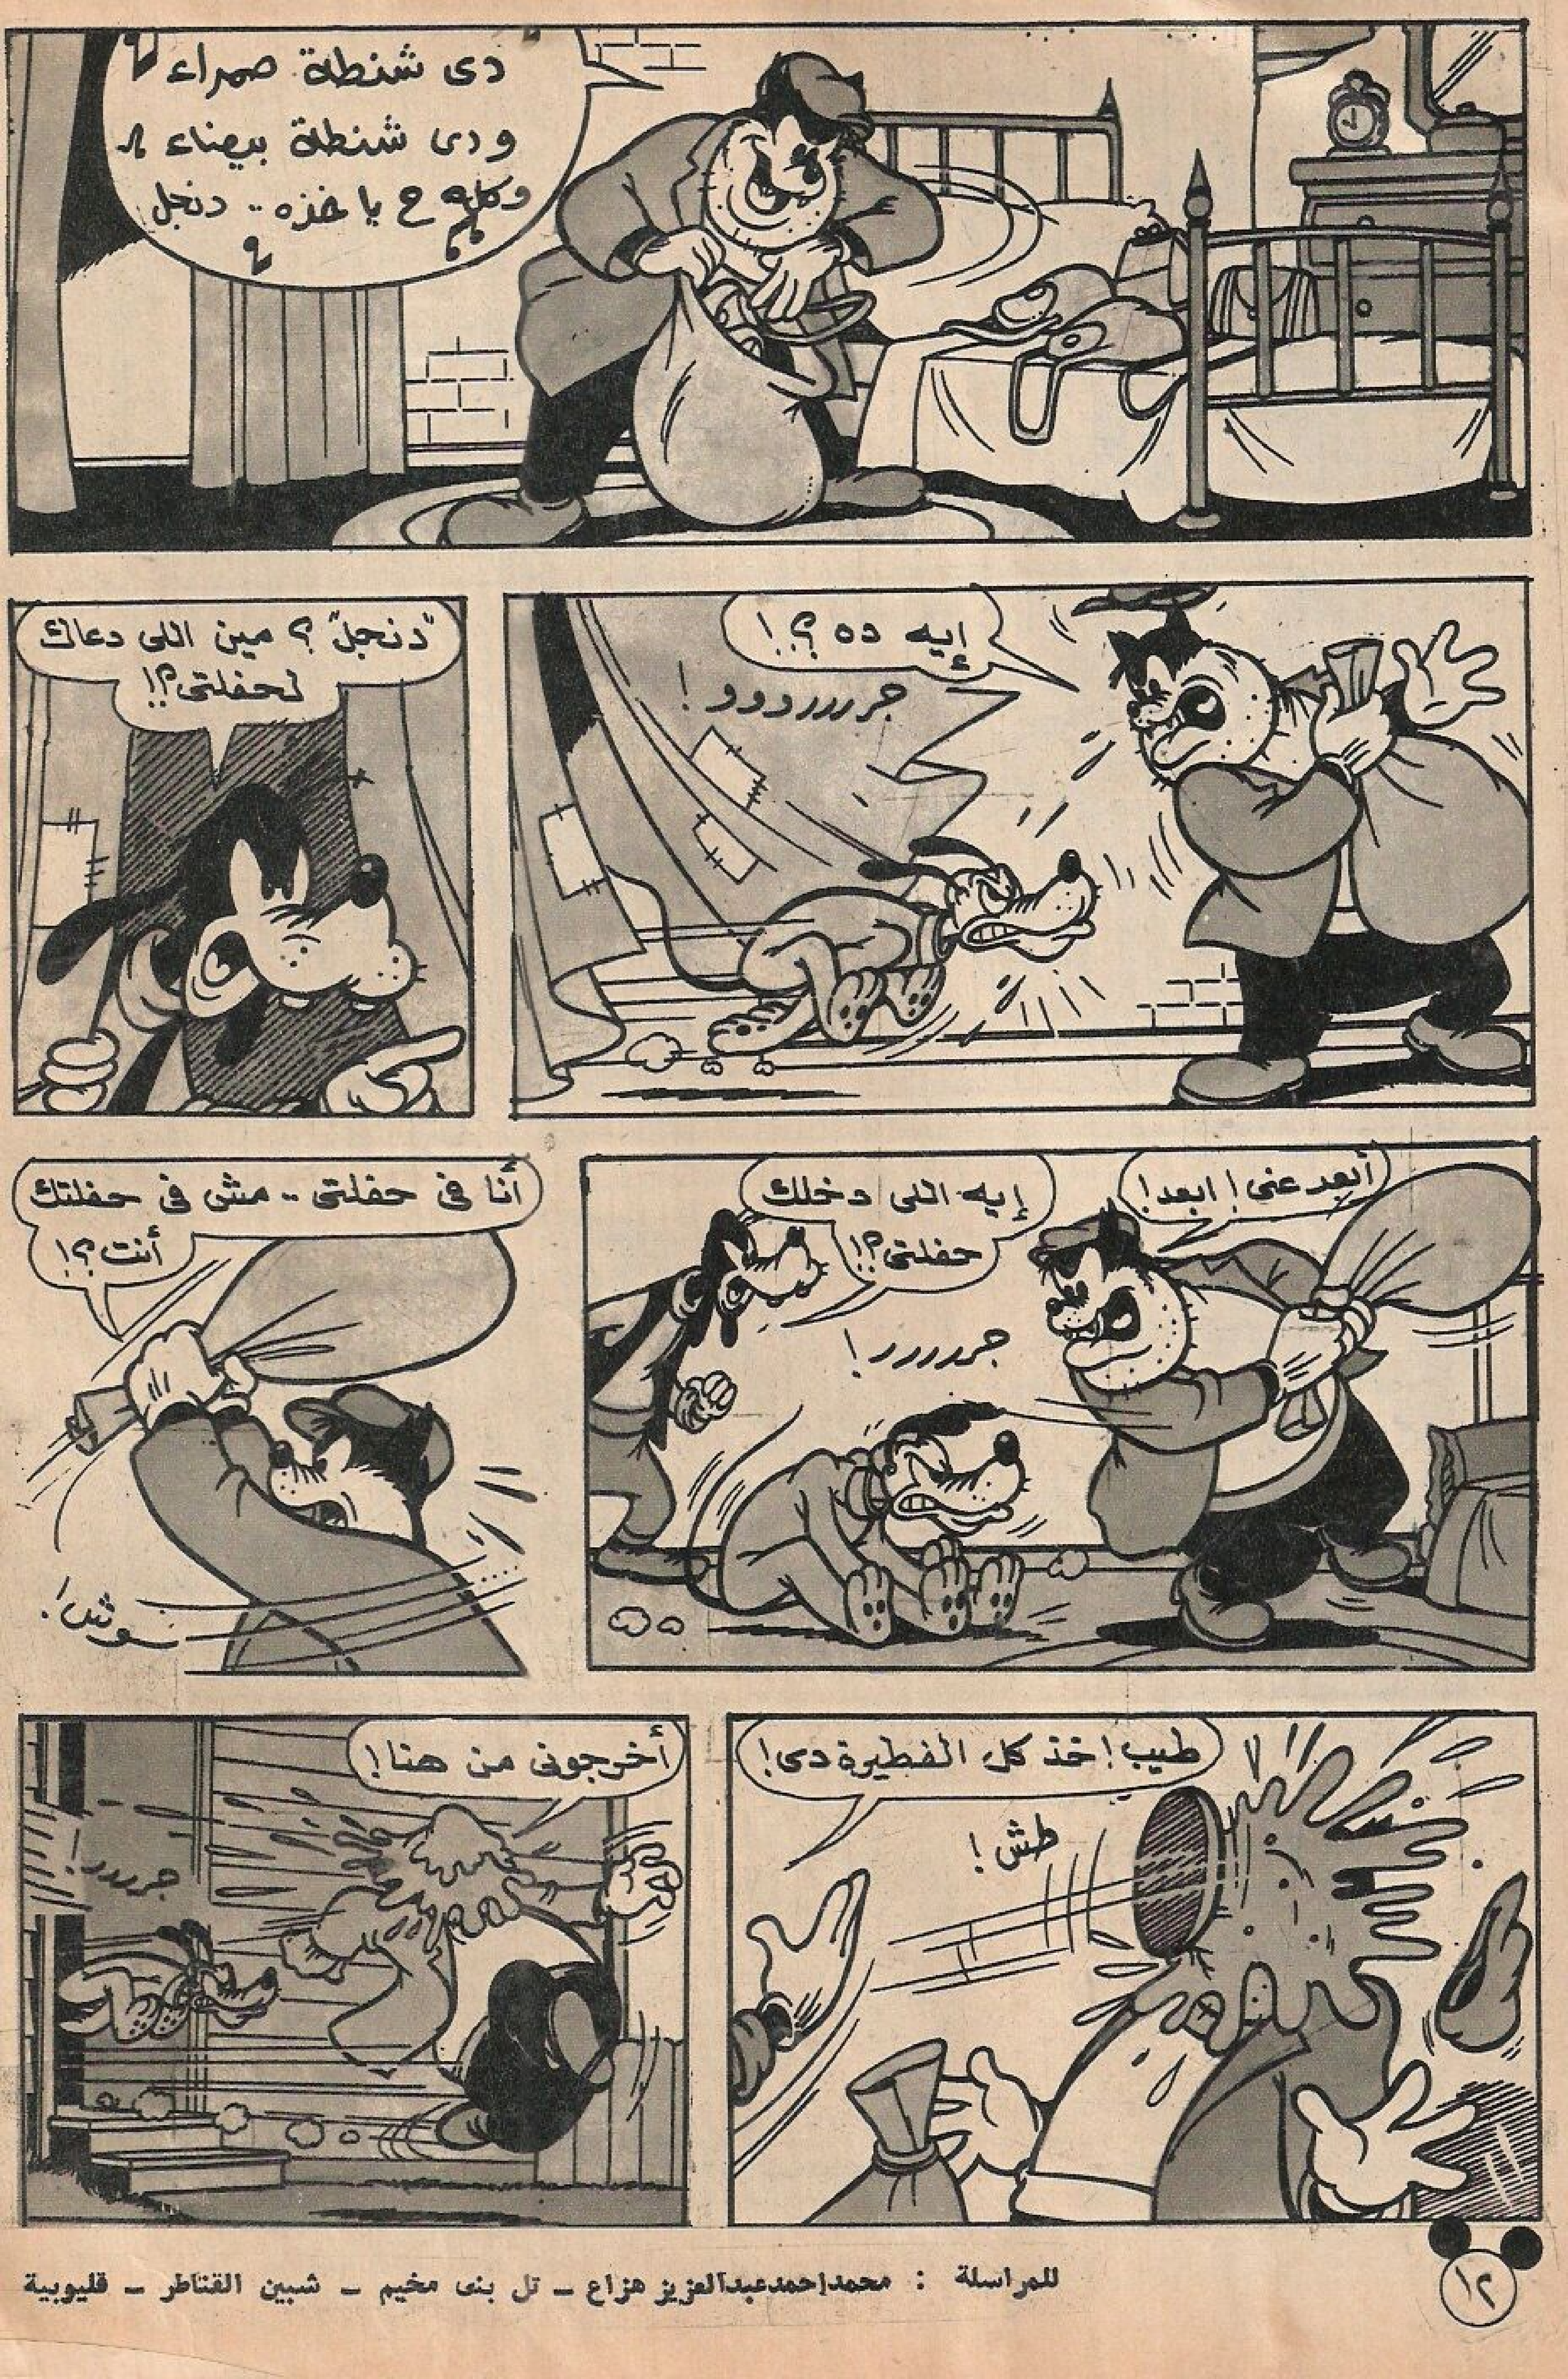 دى شنطة حمراء
ودى شنطة بيضاء
وكله ح يا خذه .. دنجل
إيه ده ؟!
جررررووو !
"دنجل" ؟ مين اللى دعاك
لحفلتى ؟!
أبعد عنى ! ابعد !
إيه اللى دخلك
حفلتى ؟!
جررررر !
أنا فى حفلتى .. مش فى حفلتك
أنت ؟!
سوش !
طيب ! خذ كل الفطيرة دى !
طش !
أخرجونى من هنا !
جررررر !
للمراسلة : محمد احمد عبدالعزيز هزاع - تل بنى مخيم - شبين القناطر - قليوبية
١٢